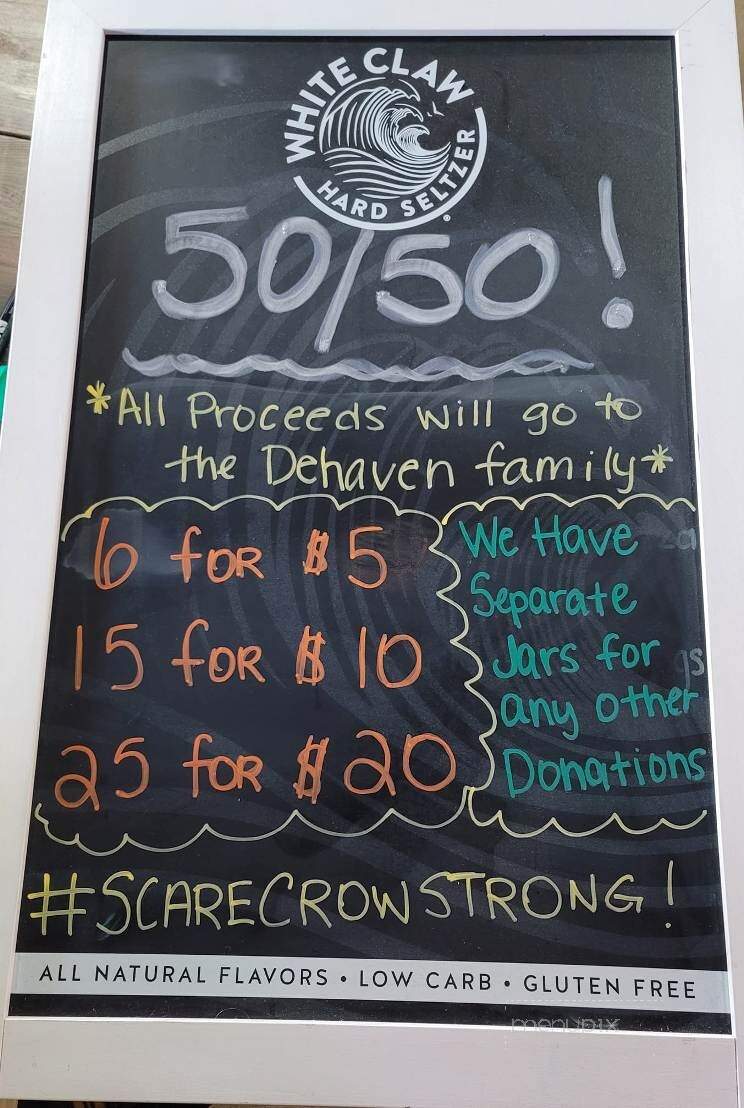 WHITE CLAW
HARD SELTZER
50/50!
*All Proceeds will go to
the Dehaven family*
6 for $5
15 for $10
25 for $20
We Have
Separate
Jars for
any other
Donations
#SCARECROWSTRONG!
ALL NATURAL FLAVORS • LOW CARB • GLUTEN FREE
menupix